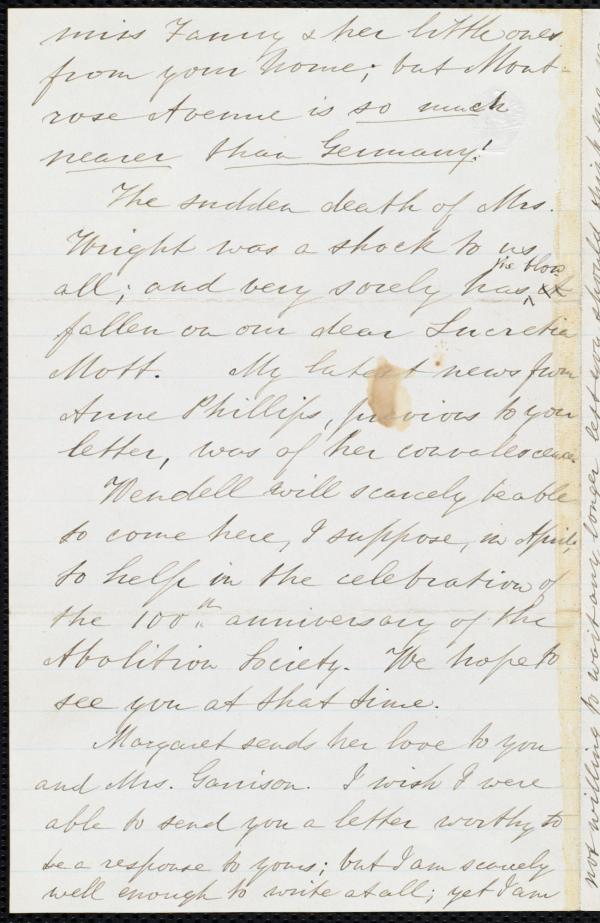 miss Fanny & her little ones
from your home; but Mont-
rose Avenue is so much
nearer than Germany!
The sudden death of Mrs.
Wright was a shock to us
all; and very sorely has the blow
fallen on our dear Lucretia
Mott. My latest news from
Anne Phillips, previous to your
letter, was of her convalescence.
Wendell will scarcely be able
to come here, I suppose, in April,
to help in the celebration of
the 100th anniversary of the
Abolition Society. We hope to
see you at that time.
Margaret sends her love to you
and Mrs. Garrison. I wish I were
able to send you a letter worthy to
be a response to yours; but I am scarcely
well enough to write at all; yet I am
not willing to wait any longer lest you should think me